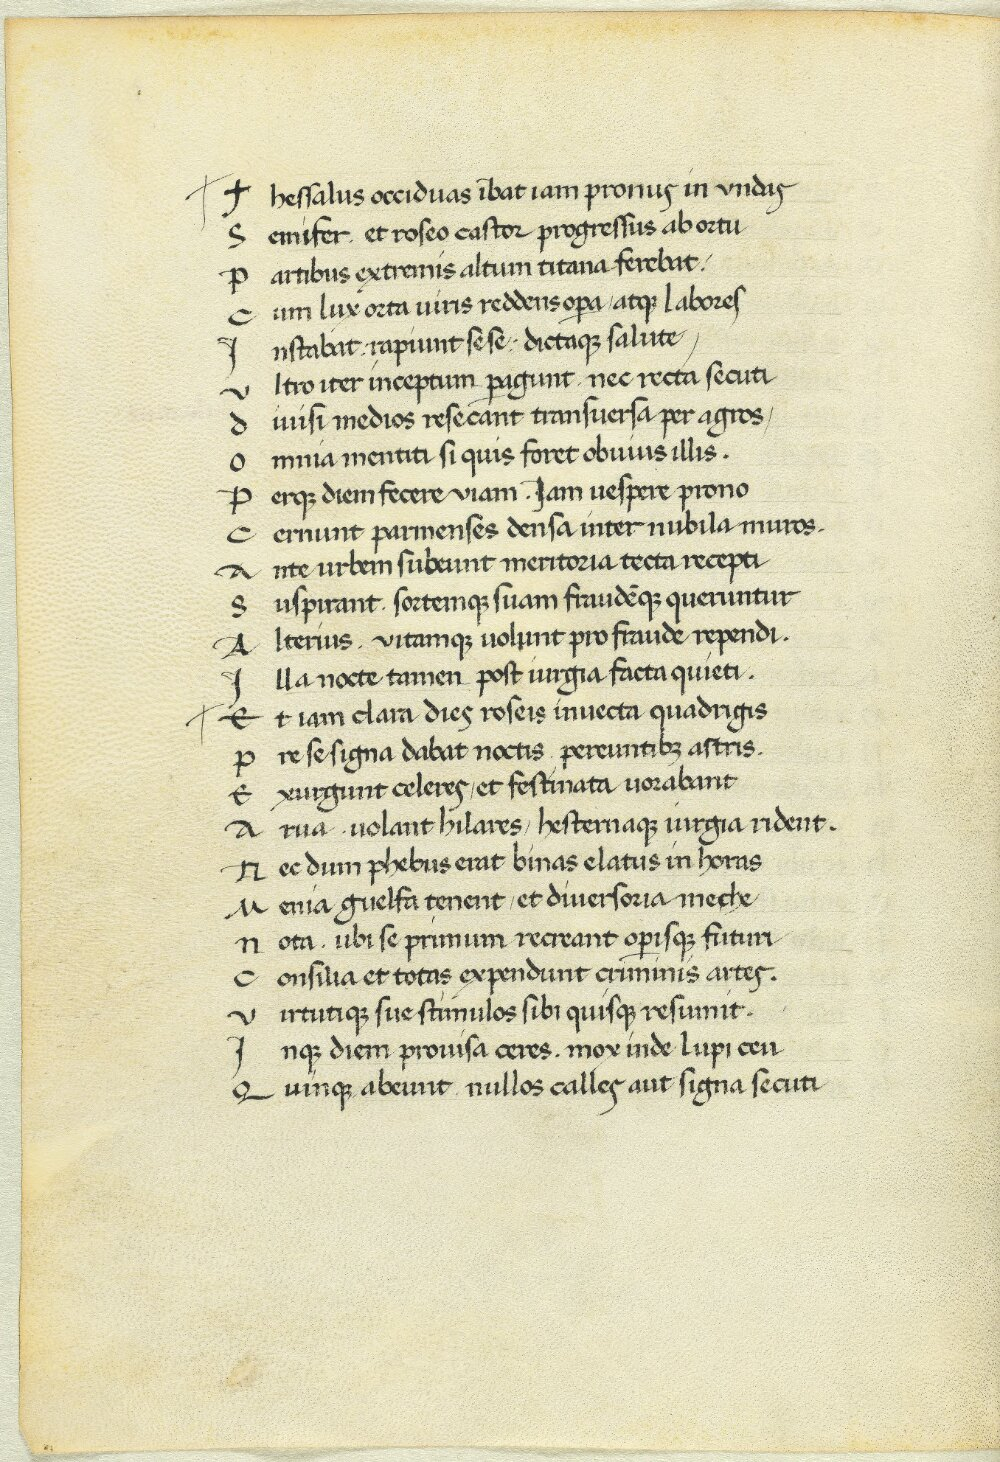 T hessalus occiduas ībat iam pronus in vndas
S emifer. et roseo castor progressus ab ortu
P artibus extremis altum titana ferebat.
C um lux orta uiris reddens oꝑa / atqꝫ labores
I nstabat. rapiunt sese. dictaqꝫ salute /
V ltro iter inceptum ꝑagunt. nec recta secuti
D iuisi medios resecant transuersa per agros /
O mnia mentiti si quis foret obuius illis.
P erqꝫ diem fecere viam. Iam uespere prono
C ernunt parmenses densa inter nubila muros.
A nte urbem subeunt meritoria tecta recepti
S uspirant. sortemqꝫ suam fraudēqꝫ queruntur
A lterius. vitamqꝫ uolunt pro fraude rependi.
I lla nocte tamen post iurgia facta quieti.
E t iam clara dies roseis inuecta quadrigis
P re se signa dabat noctis pereuntibꝫ astris.
E xurgunt celeres / et festinata uorabant
A rua. uolant hilares / hesternaqꝫ iurgia rident.
N ec dum phebus erat binas elatus in horas
M enia guelfa tenent / et diuersoria meche
N ota. ubi se primum recreant oꝑisqꝫ futuri
C onsilia et totas expendunt criminis artes.
V irtutiqꝫ sue stimulos sibi quisqꝫ resumit.
I nqꝫ diem prouisa ceres. mox inde lupi ceu
Q uinqꝫ abeunt. nullos calles aut signa secuti